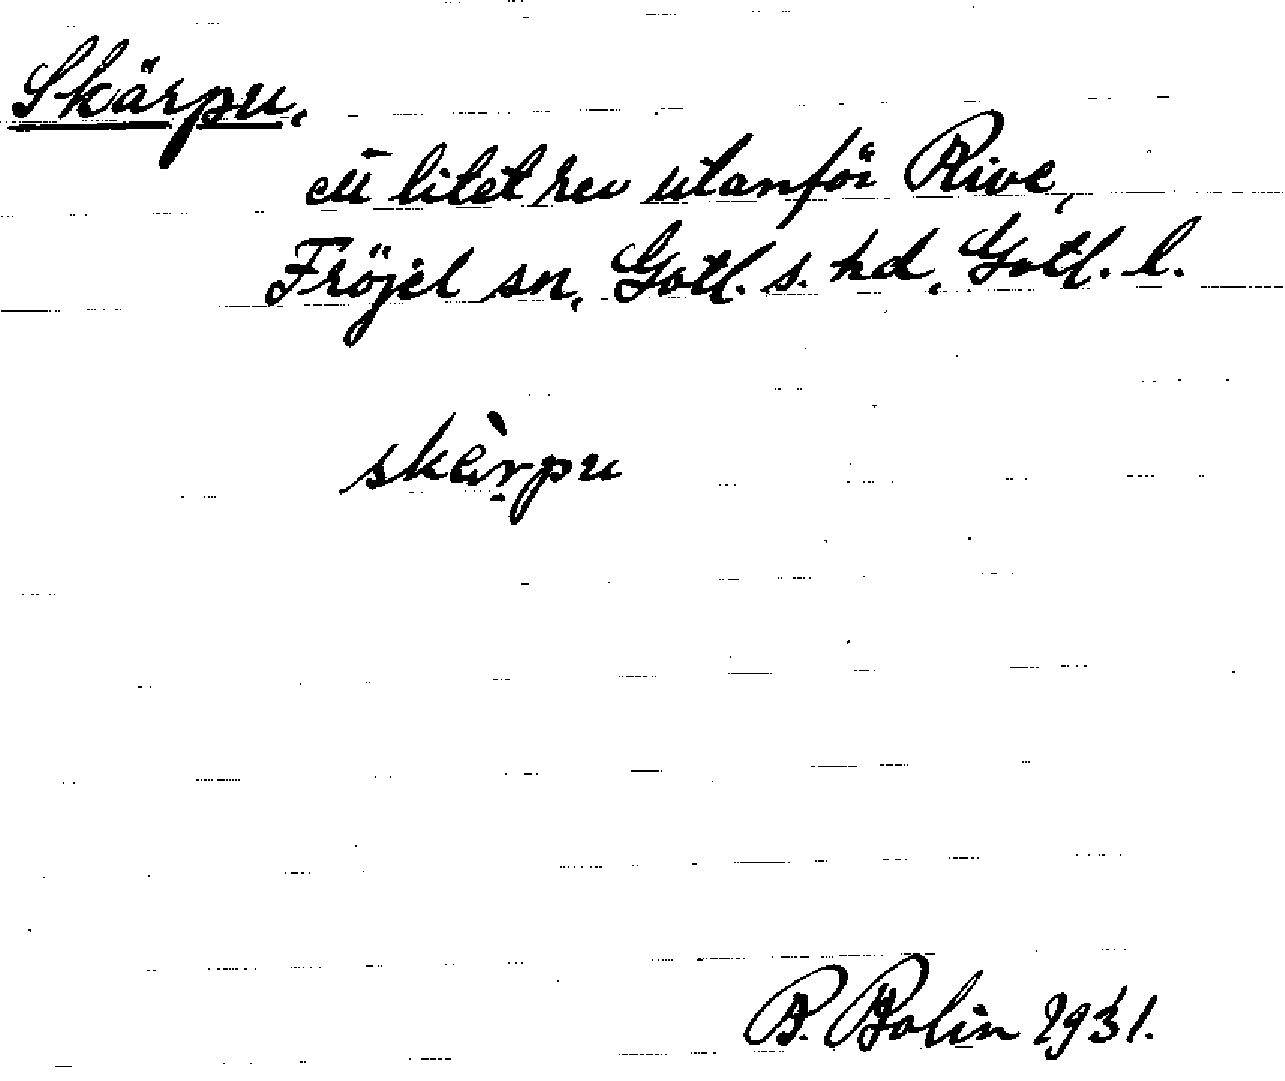 Skärpu.
ett litet rev utanför Rive,
Fröjel sn, Gotl. s. hd, Gotl. l.
skèrpu
B. Bolin 1931.